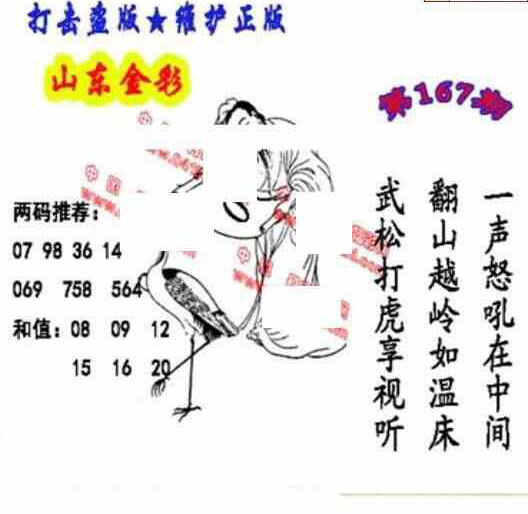 打击盗版★维护正版
山东金彩
第167期
两码推荐:
07 98 36 14
069 758 564
和值: 08 09 12
15 16 20
一声怒吼在中间
翻山越岭如温床
武松打虎享视听